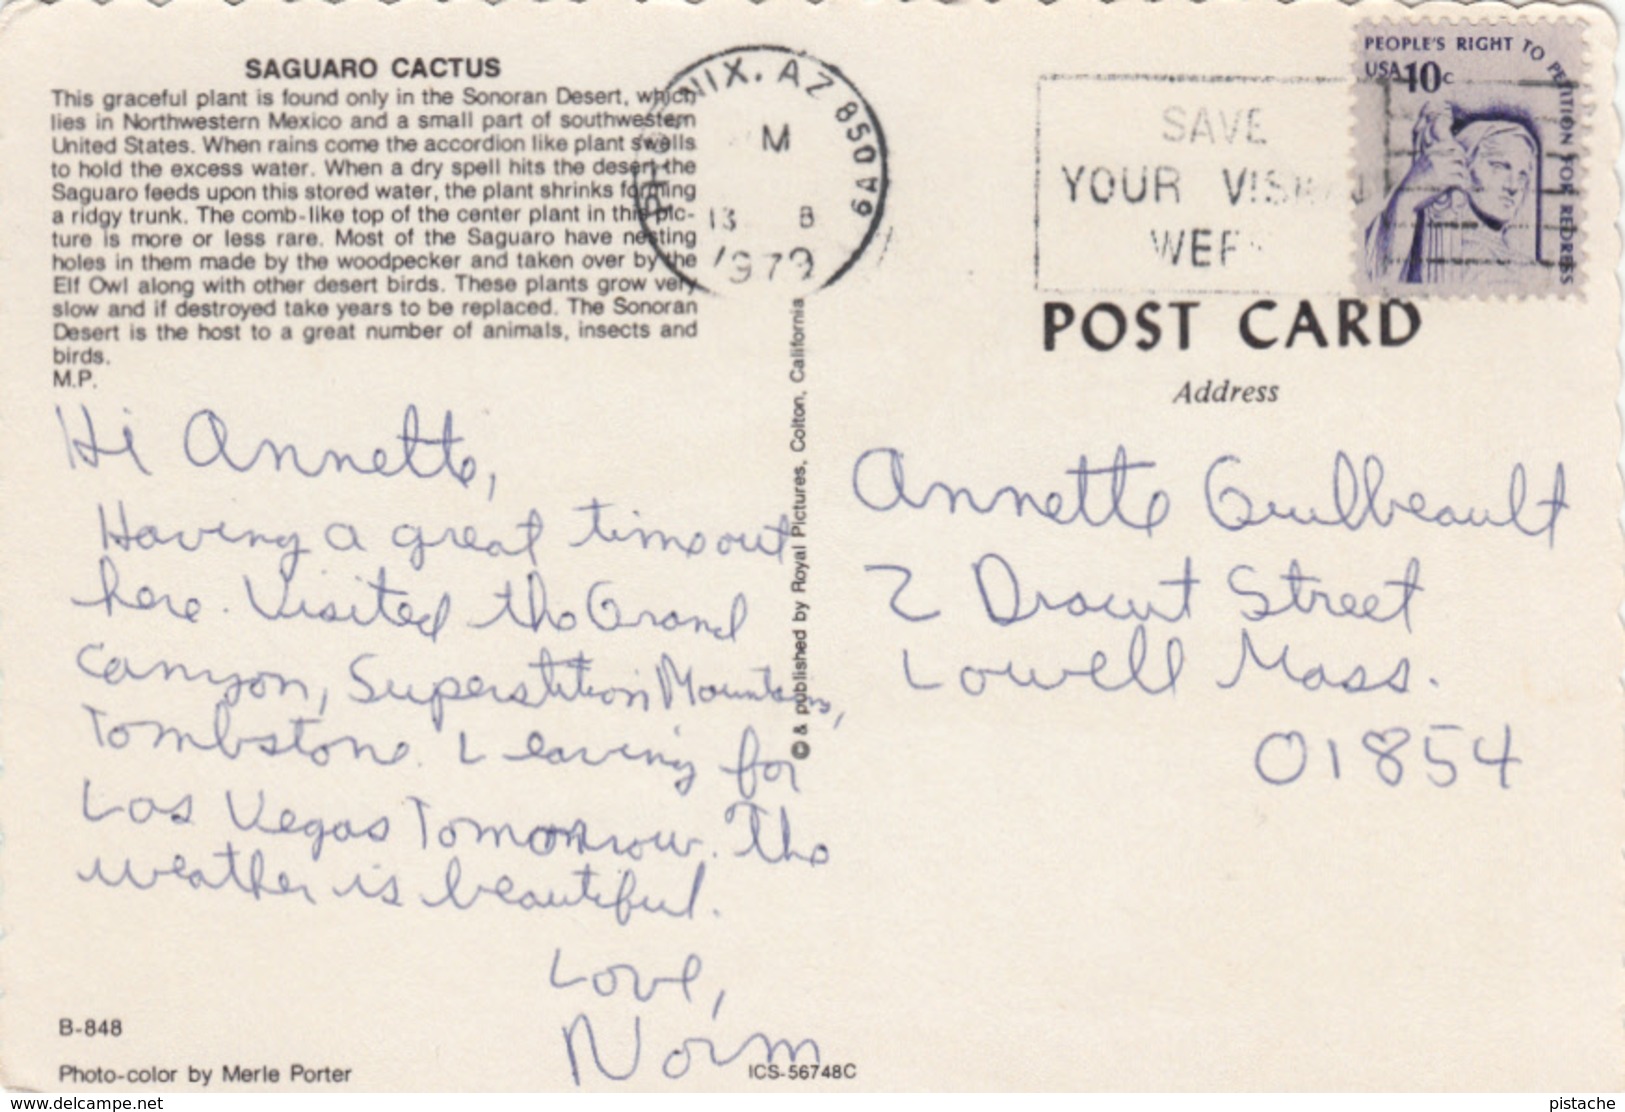 SAGUARO CACTUS
This graceful plant is found only in the Sonoran Desert, which
lies in Northwestern Mexico and a small part of southwestern
United States. When rains come the accordion like plant swells
to hold the excess water. When a dry spell hits the desert the
Saguaro feeds upon this stored water, the plant shrinks forming
a ridgy trunk. The comb-like top of the center plant in this pic-
ture is more or less rare. Most of the Saguaro have nesting
holes in them made by the woodpecker and taken over by the
Elf Owl along with other desert birds. These plants grow very
slow and if destroyed take years to be replaced. The Sonoran
Desert is the host to a great number of animals, insects and
birds.
M.P.
Hi Annette,
Having a great time out
here. Visited the Grand
Canyon, Superstition Mountains,
Tombstone. Leaving for
Las Vegas Tomorrow. The
weather is beautiful.
Love,
Norm
B-848
Photo-color by Merle Porter
ICS-56748C
© & published by Royal Pictures, Colton, California
AZ 850A9
M
13 B
1979
SAVE
YOUR
PEOPLE'S RIGHT TO PETITION FOR REDRESS
USA 10c
POST CARD
Address
Annette Guilbeault
2 Dracut Street
Lowell Mass.
01854
delcampe.net
pistache